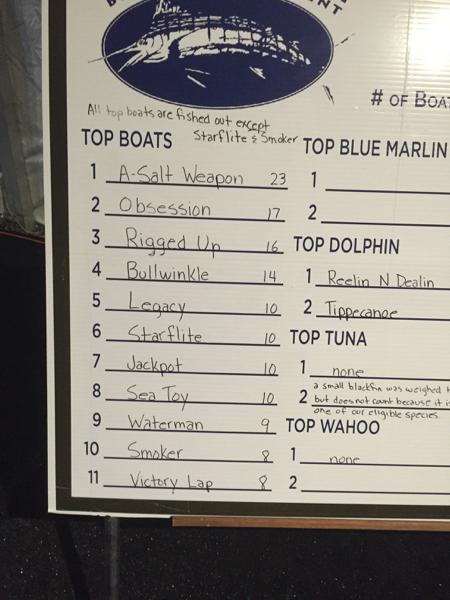 # OF BOAT
All top boats are fished out except
Starflite & Smoker
TOP BOATS
1 A-Salt Weapon 23
2 Obsession 17
3 Rigged Up 16
4 Bullwinkle 14
5 Legacy 10
6 Starflite 10
7 Jackpot 10
8 Sea Toy 10
9 Waterman 9
10 Smoker 8
11 Victory Lap 8
TOP BLUE MARLIN
1
2
TOP DOLPHIN
1 Reelin N Dealin
2 Tippecanoe
TOP TUNA
1 none
a small blackfin was weighed
2 but does not count because it is
one of our eligible species
TOP WAHOO
1 none
2